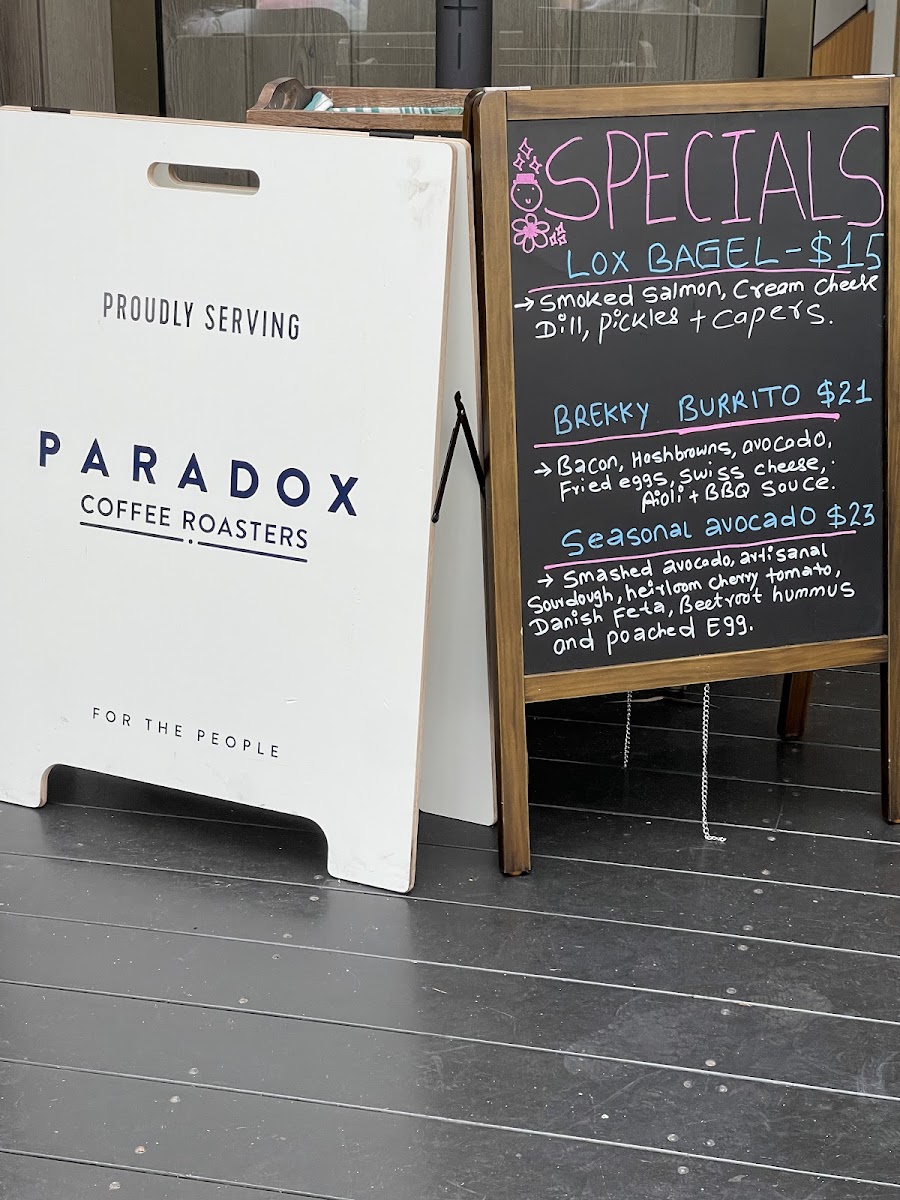 PROUDLY SERVING
PARADOX
COFFEE ROASTERS
FOR THE PEOPLE
SPECIALS
LOX BAGEL - $15
→ Smoked salmon, Cream cheese
Dill, pickles + capers.
BREKKY BURRITO $21
→ Bacon, Hashbrowns, avocado,
Fried eggs, swiss cheese,
Aioli + BBQ Sauce.
Seasonal avocado $23
→ Smashed avocado, artisanal
Sourdough, heirloom cherry tomato,
Danish Feta, Beetroot hummus
and poached Egg.